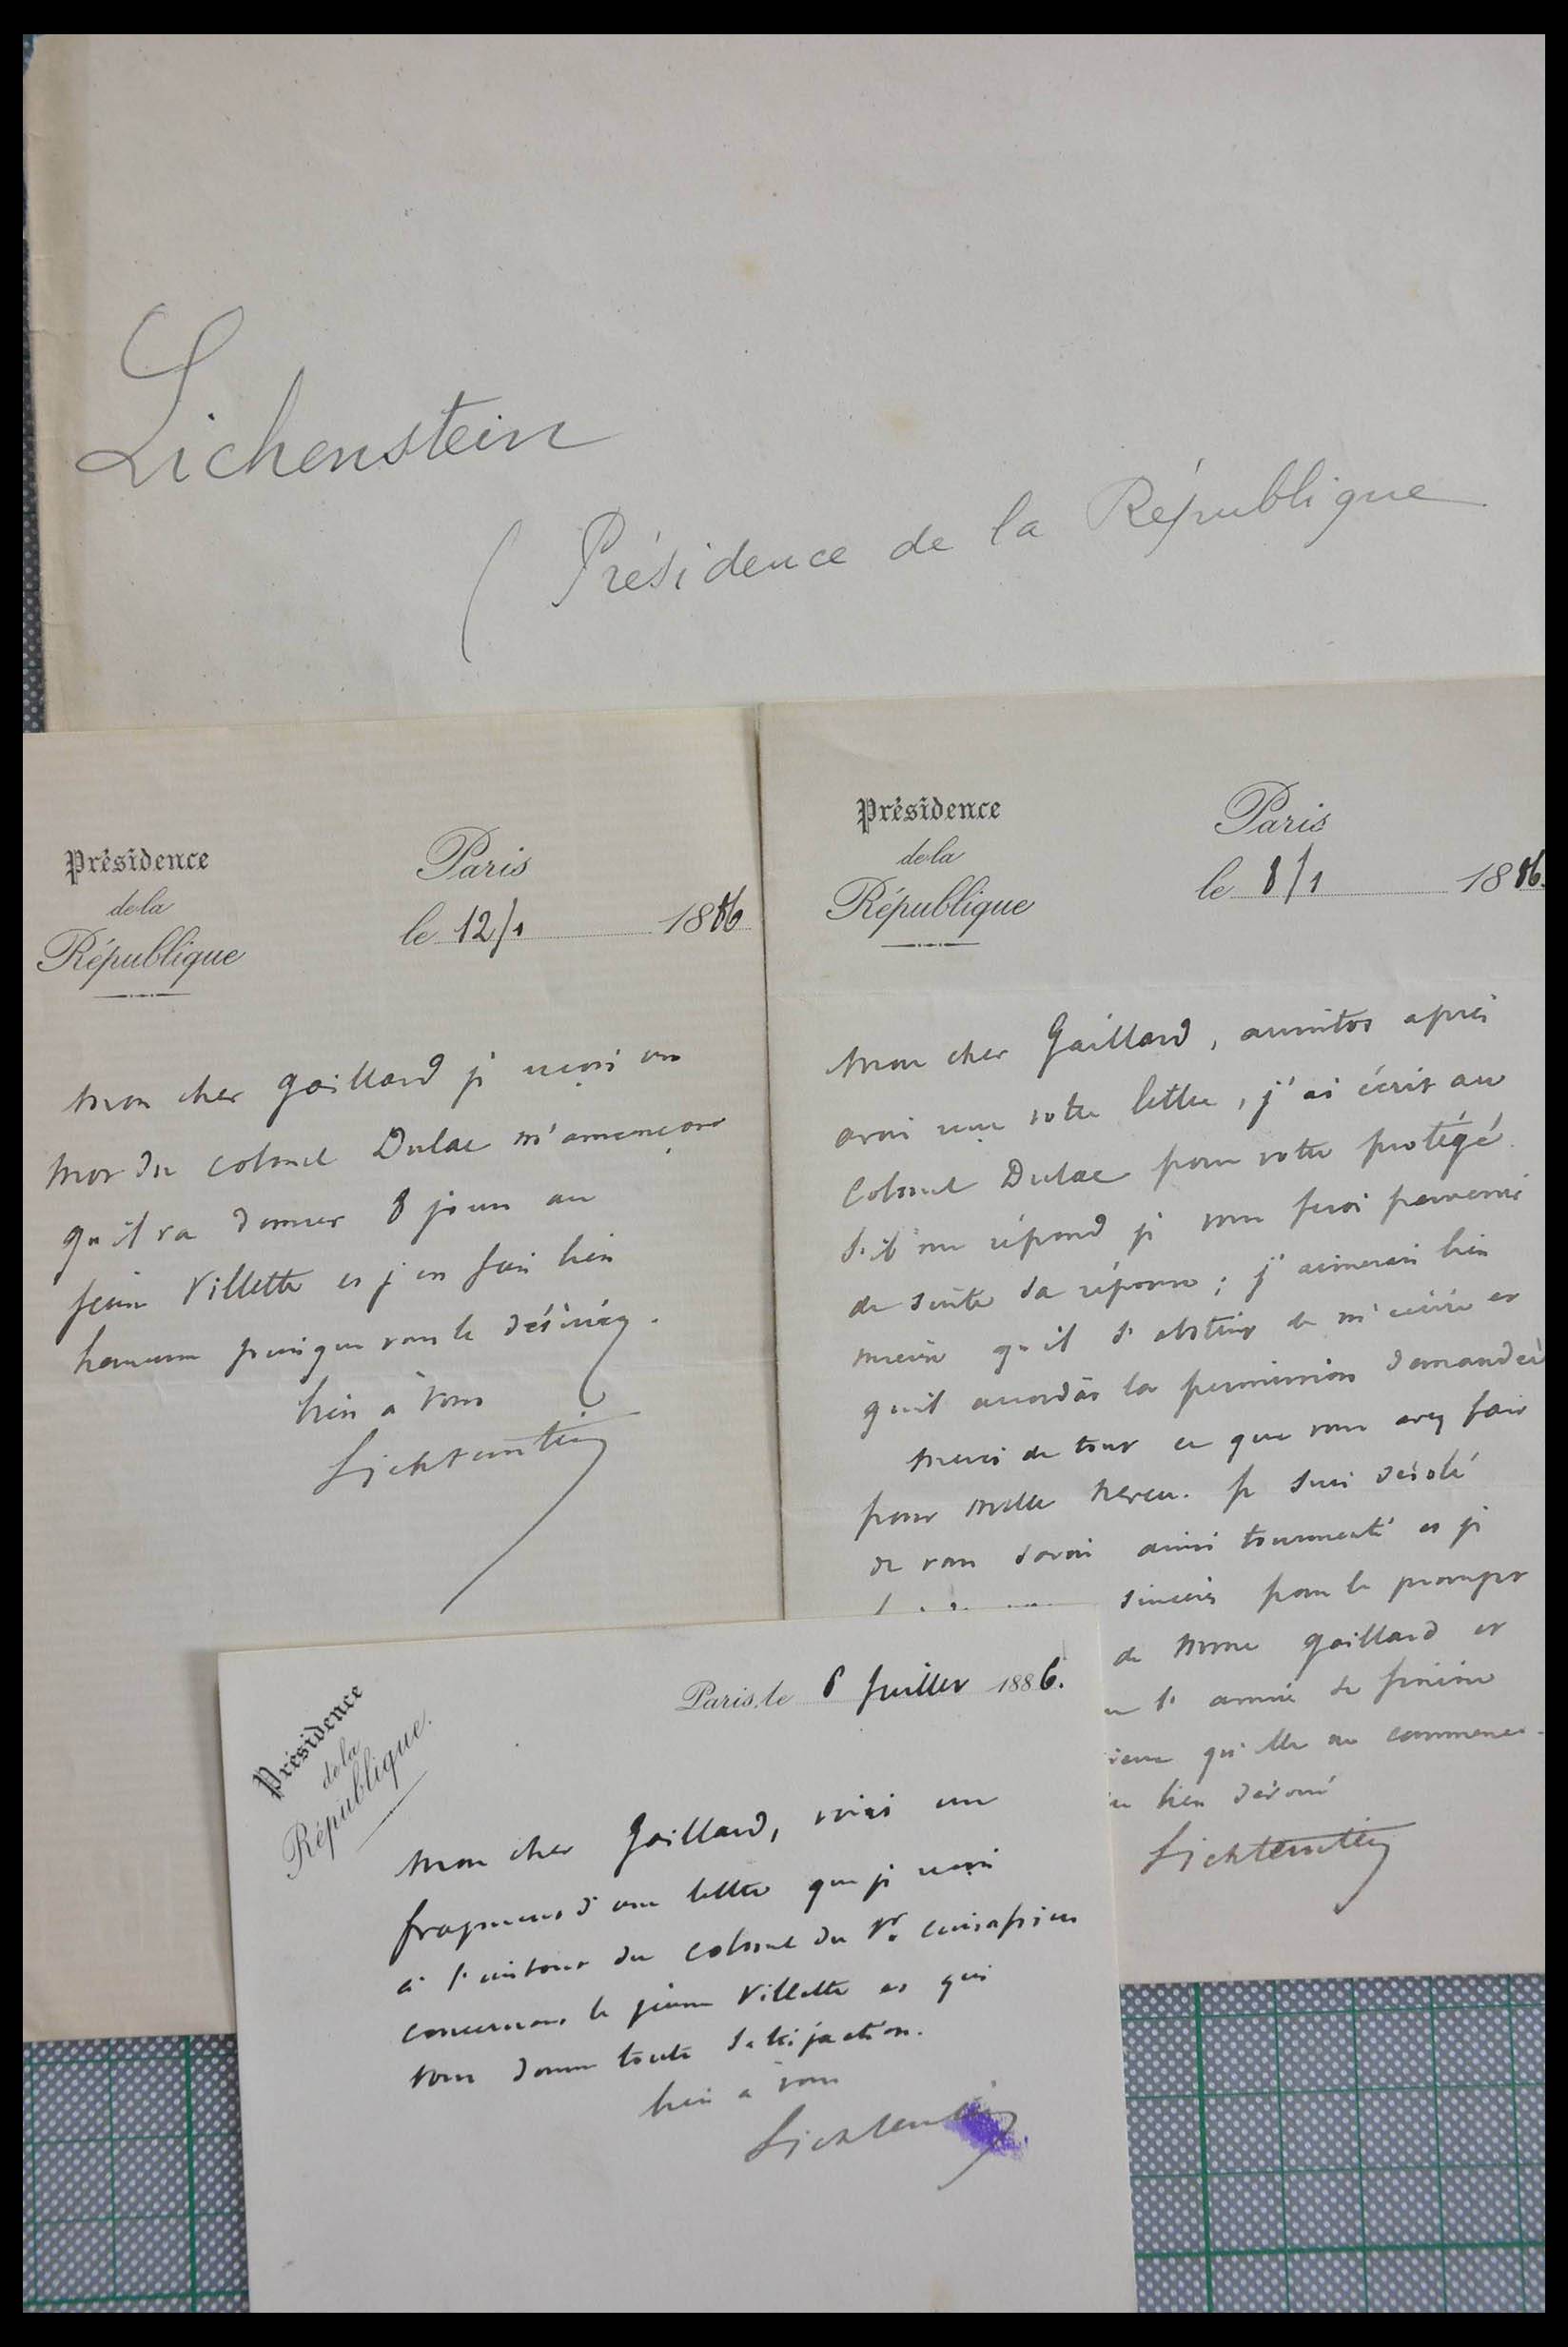 Lichenstein
( Présidence de la République
Présidence
de la
République
Paris
le 12/1 1886
Mon cher Gaillard je reçois un
mot du colonel Dulac m'annonçant
qu'il va donner 8 jours au
jeune Villette et j'en suis bien
heureux puisque vous le désirez.
bien à vous
Lichtenstein
Présidence
de la
République
Paris
le 8/1 1886.
Mon cher Gaillard, aussitôt après
avoir reçu votre lettre, j'ai écrit au
Colonel Dulac pour votre protégé.
S'il me répond je vous ferai parvenir
de suite sa réponse ; j'aimerais bien
mieux qu'il s'abstint de m'écrire et
qu'il accordât la permission demandée
Merci de tout ce que vous avez fait
pour Melle. Je suis désolé
de vous avoir ainsi tourmenté et je
sincères pour le prompt
de Mme Gaillard et
l'année se finisse
qu'elle ne commence
bien dévoué
Lichtenstein
Présidence
de la
République.
Paris, le 8 Juillet 1886.
Mon cher Gaillard, voici un
fragment d'une lettre que je reçois
à l'instant du colonel du 1er cuirassiers
concernant le jeune Villette et qui
vous donne toute satisfaction.
bien à vous
Lichtenstein